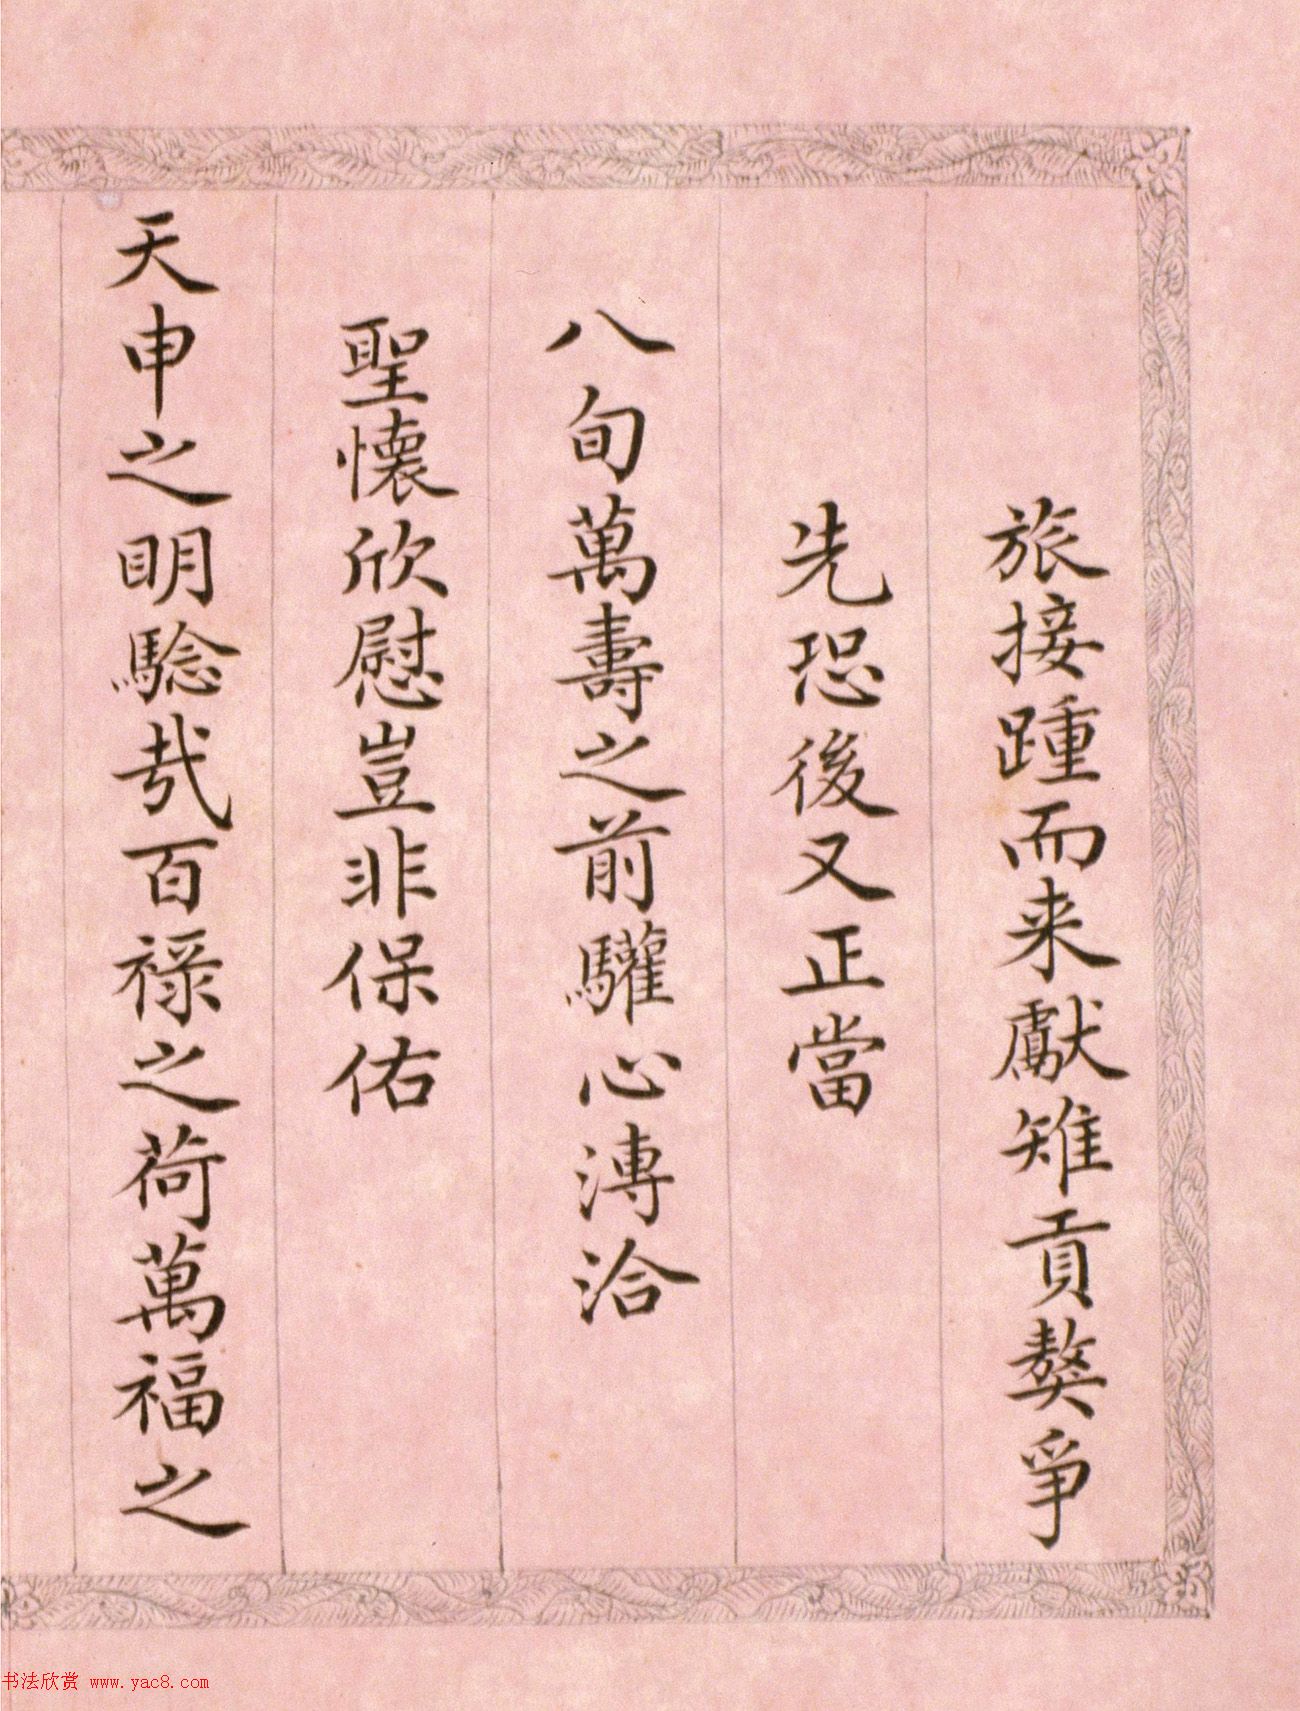 旅接踵而来獻雉貢獒爭
先恐後又正當
八旬萬壽之前驩心溥洽
聖懷欣慰豈非保佑
天申之明騐哉百禄之荷萬福之
书法欣赏 www.yac8.com